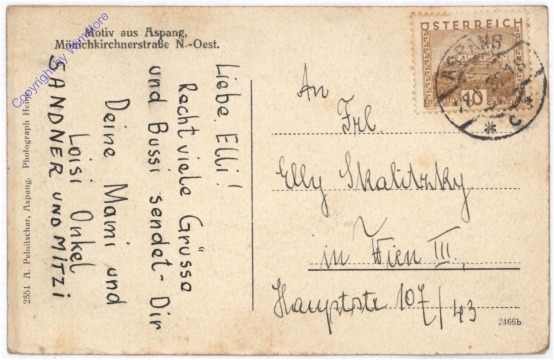 Motiv aus Aspang,
Mönichkirchnerstraße N.-Oest.
Copyright by
Liebe Elli!
Recht viele Grüsse
und Bussi sendet Dir
Deine Mami und
Loisi Onkel
SANDNER UND MITZI
2551 A. Pelnitschar, Aspang. Photograph
ÖSTERREICH
10
ASPANG
* c *
An
Frl.
Elly Skalitzky
in Wien III,
Hauptstr 107/43
2466b